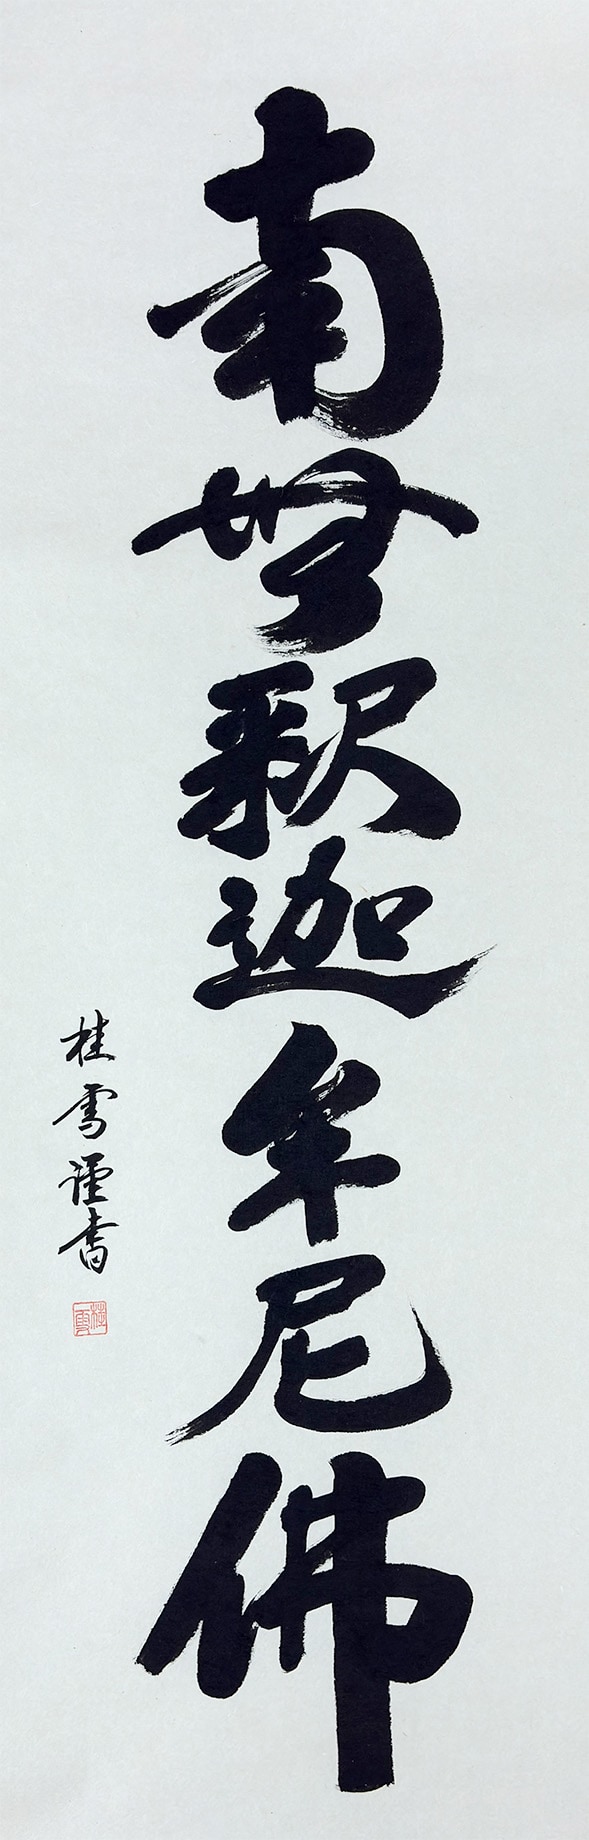 南無釈迦牟尼佛
桂雪謹書
桂雪